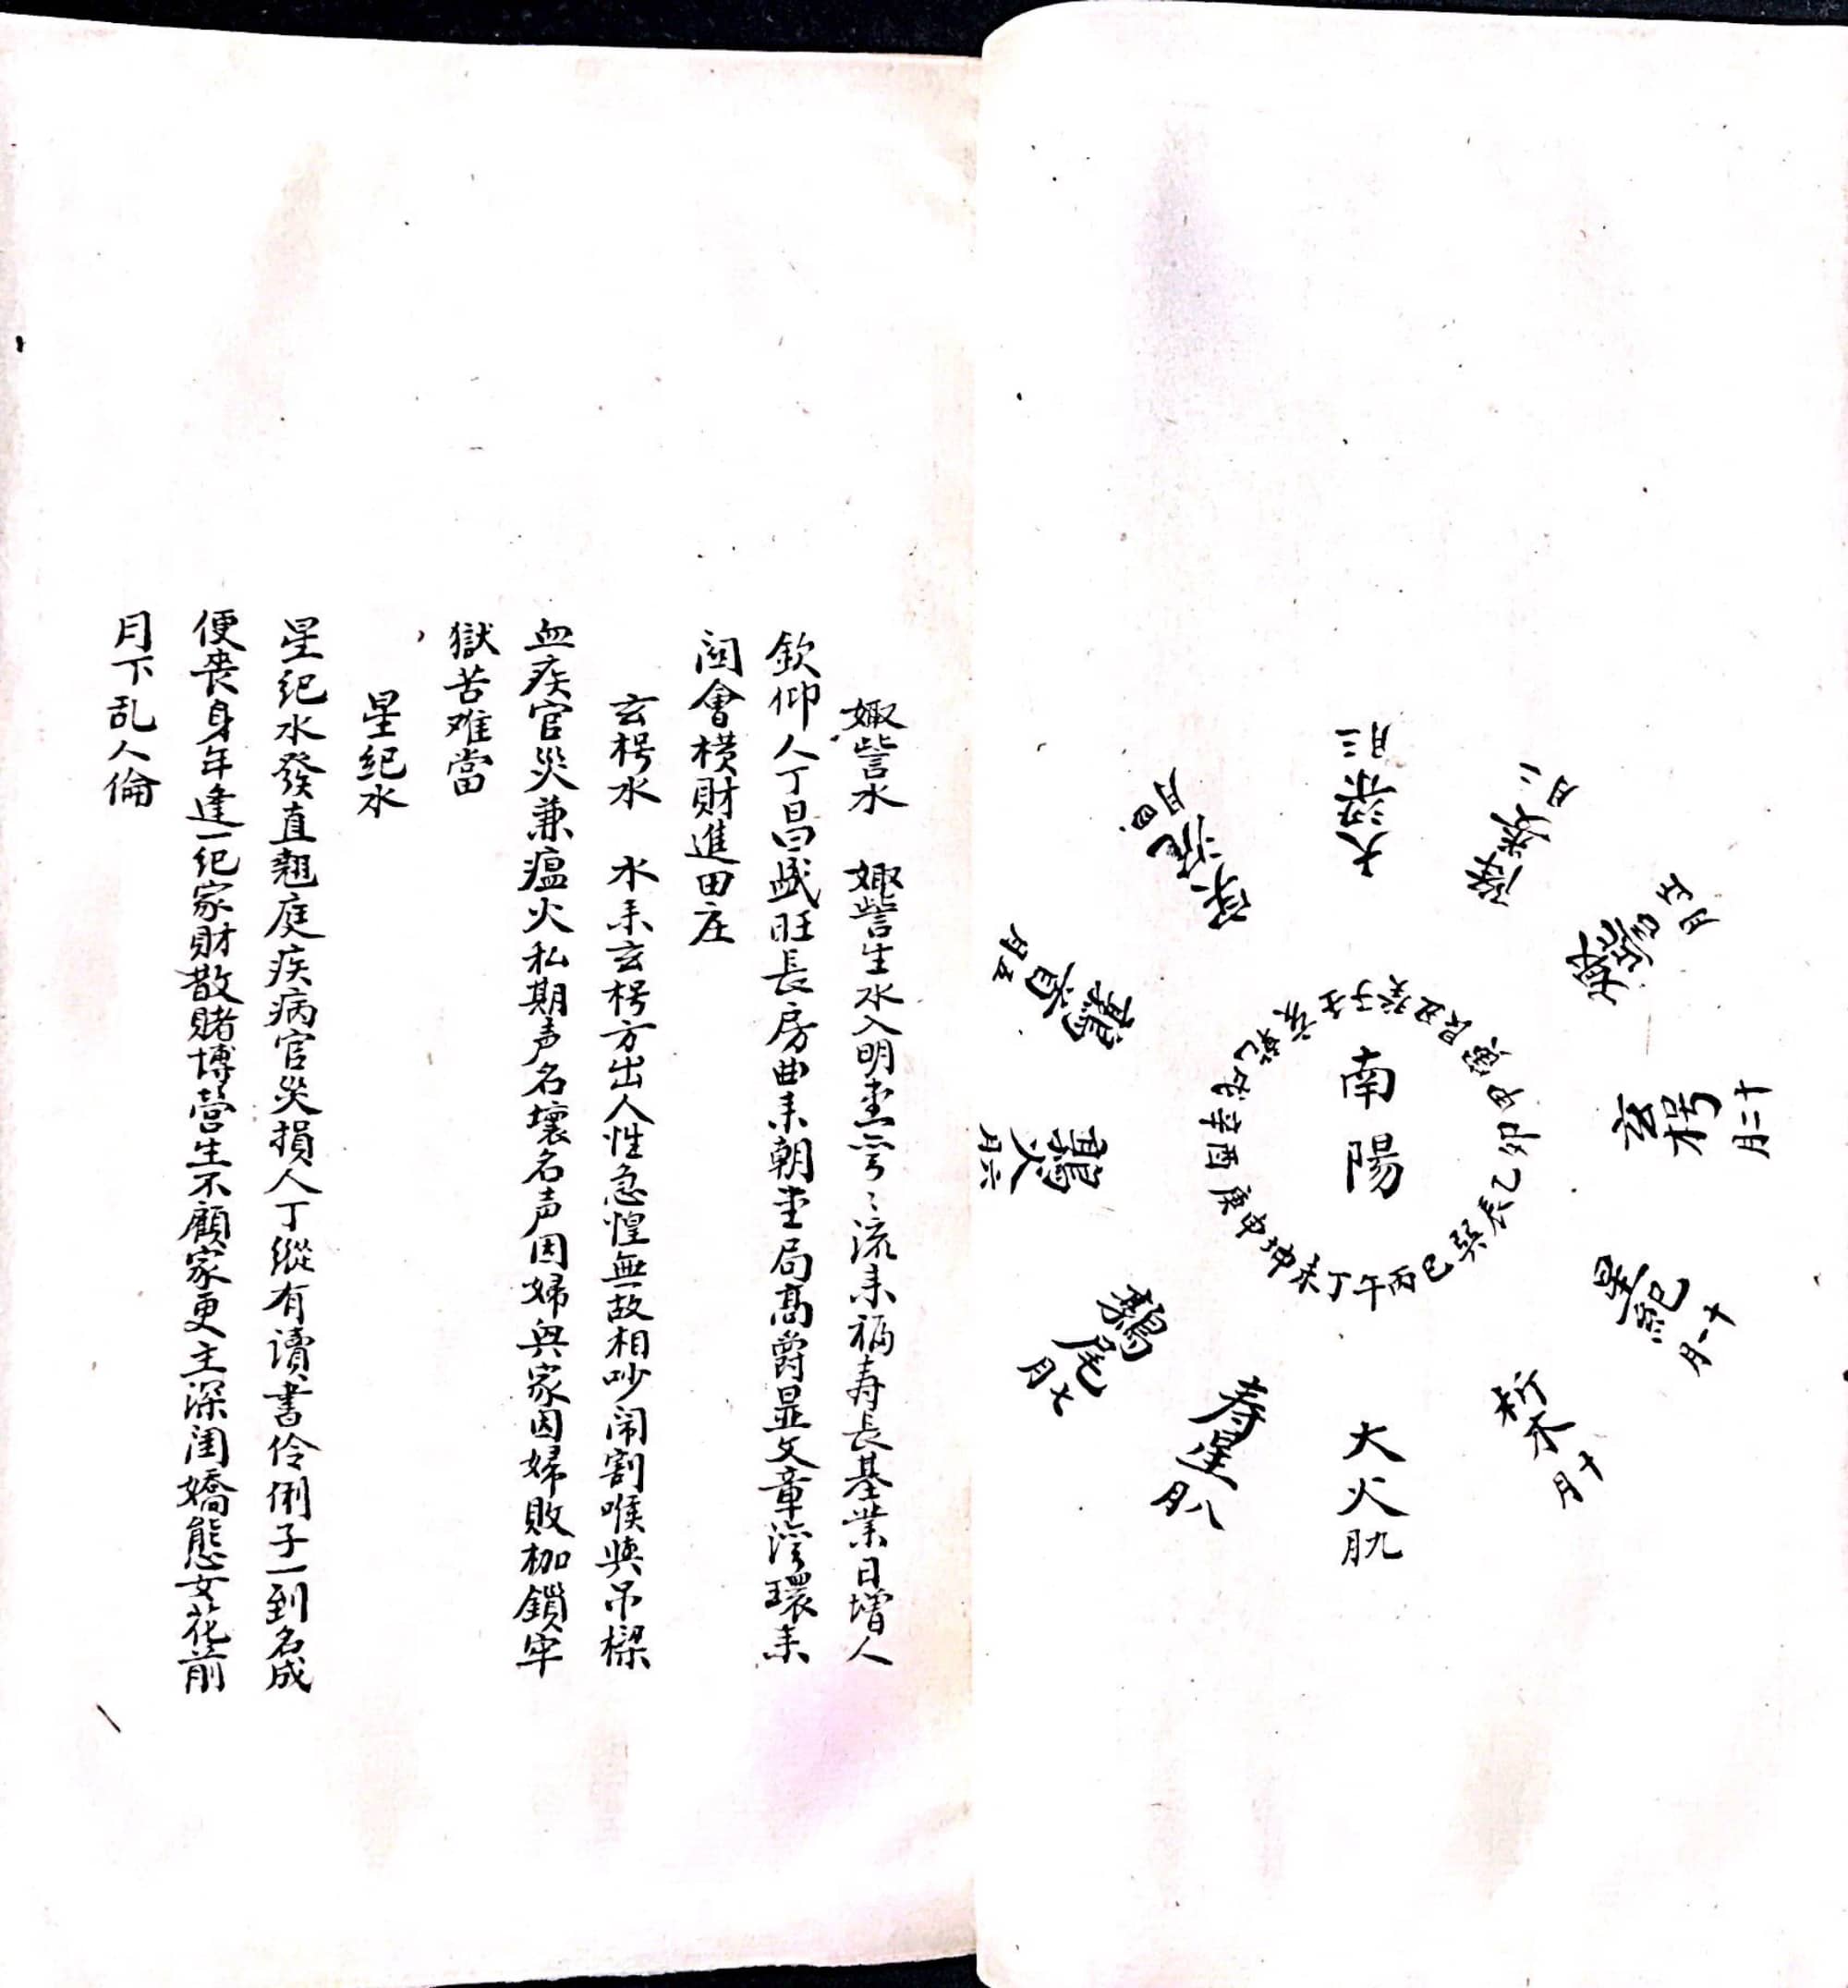 南陽
壬子癸丑艮寅甲卯乙辰巽巳丙午丁未坤申庚酉辛戌乾亥
大梁三月
降婁二月
娵訾正月
玄枵十二月
星紀十一月
析木十月
大火九月
寿星八月
鶉尾七月
鶉火六月
鶉首五月
四月
娵訾水　娵訾生水入明堂湾〻流来福寿長基業日增人
欽仰人丁昌盛旺長房曲来朝堂局高爵显文章湾環来
闾會横財進田庄
玄枵水　水来玄枵方出人性急惶無故相吵闹割喉與吊樑
血疾官災兼瘟火私期声名壞名声因婦與家因婦敗枷鎖牢
獄苦难當
星紀水
星紀水發直翹庭疾病官災損人丁縱有讀書伶俐子一到名成
便丧身年逢一纪家財散賭博營生不顧家更主深闺嬌態女花前
月下乱人倫